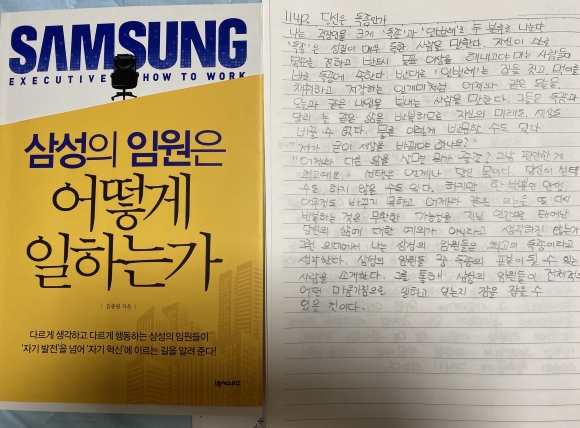 SAMSUNG
EXECUTIVE HOW TO WORK
삼성의 임원은
어떻게
일하는가
| 김종원 지음 |
다르게 생각하고 다르게 행동하는 삼성의 임원들이
'자기 발전'을 넘어 '자기 혁신'에 이르는 길을 알려 준다!
넥서스BIZ
114P. 당신은 독종인가
나는 직장인을 크게 '독종'과 '일벌레'로 두 분류로 나눈다
'독종'은 성질이 매우 독한 사람을 말한다. 자신이
목표를 정하고 반드시 목표 이상을 해내고야 마는 사람들이
바로 독종에 속한다. 반대로 '일벌레'는 집을 짓고, 먹이를
채취하고 저장하는 일개미처럼 어제와 같은 오늘을,
오늘과 같은 내일을 보내는 사람을 말한다. 그들은 독종과
달리 늘 같은 삶을 반복하므로 자신의 미래도, 세상도
바꿀 수 없다. 물론 이렇게 반문할 수도 있다.
"제가 굳이 세상을 바꿔야 하나요?"
"어제와 다른 삶을 사는 게 뭐가 중요? 그냥 편안한 게
최고예요." 선택은 언제나 당신 몫이다. 당신이 선택
수도 하지 않을 수도 있다. 하지만 한 번뿐인 인생
아무것도 바꾸지 못하고 어제와 같은 오늘을 또 다시
반복하는 것은 무한한 가능성을 지닌 인간으로 태어난
당신의 삶에 대한 예의가 아니라고 생각하지 않는가
그런 의미에서 나는 삼성의 임원들은 최고의 독종이라고
생각한다. 삼성의 임원들 중 독종의 표본이 될 수 있는
사람을 소개한다. 그를 통해 삼성의 임원들이 전체적으
어떤 마음가짐으로 일하고 있는지 감을 잡을 수
있을 것이다.